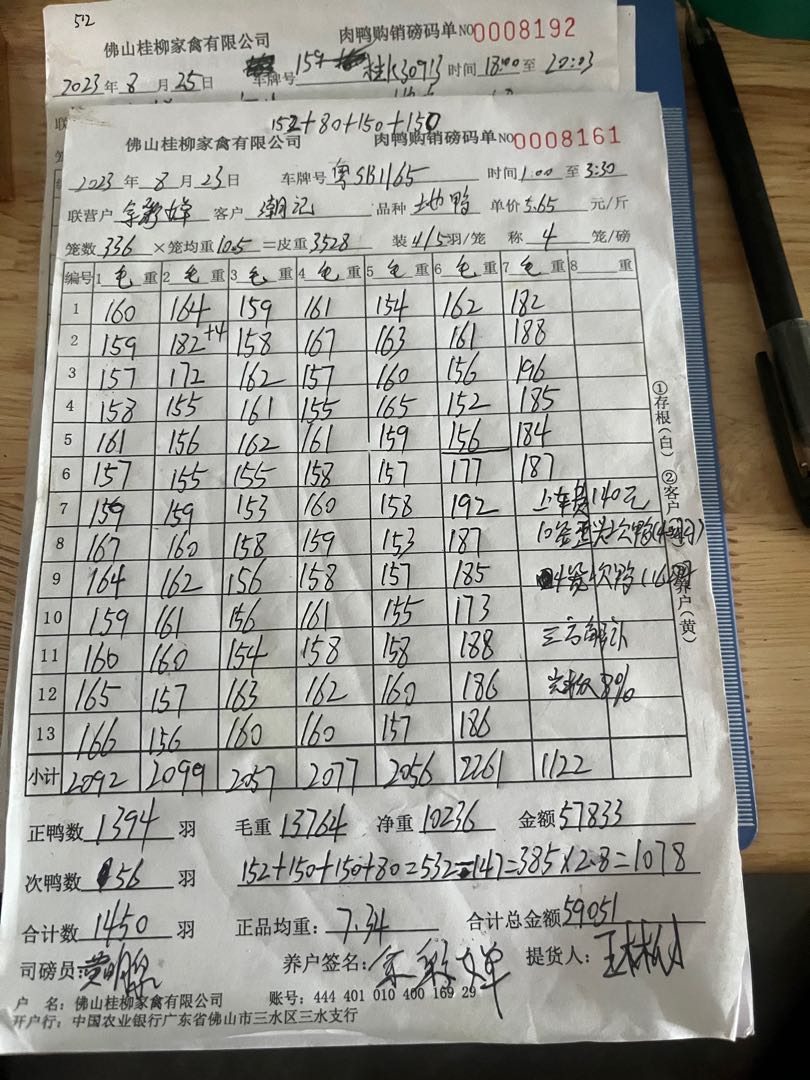 512
佛山桂柳家禽有限公司 肉鸭购销磅码单 NO 0008192
2023年 8 月 25 日 车牌号 159 桂K30913 时间 18:00 至 20:03
152+80+150+150
佛山桂柳家禽有限公司 肉鸭购销磅码单 NO 0008161
2023 年 8 月 23 日 车牌号 粤SB1165 时间 1:00 至 3:30
联营户 余彩婵 客户 潮记 品种 土鸭 单价 5.65 元/斤
笼数 336 ×笼均重 10.5 =皮重 3528 装 4/5 羽/笼 称 4 笼/磅
编号 1 毛 重 2 毛 重 3 毛 重 4 毛 重 5 毛 重 6 毛 重 7 毛 重 8 重
1 160 164 159 161 154 162 182
2 159 182+4 158 167 163 161 188
3 157 172 162 157 160 156 196
4 158 155 161 155 165 152 185
5 161 156 162 161 159 156 184
6 157 155 155 158 157 177 187
7 159 159 153 160 158 192 上车费140元
8 167 160 158 159 153 187 10笼 次鸭
9 164 162 156 158 157 185 4笼次鸭
10 159 161 156 161 155 173
11 160 160 154 158 158 188
12 165 157 163 162 160 186 8%
13 166 156 160 160 157 186
小计 2092 2099 2057 2077 2056 2261 1122
①存根(白) ②客户 养户(黄)
正鸭数 1394 羽 毛重 13764 净重 10236 金额 57833
次鸭数 56 羽 152+150+150+80=532-147=385×2.8=1078
合计数 1450 羽 正品均重: 7.34 合计总金额 59051
司磅员: 养户签名: 余彩婵 提货人:
户 名: 佛山桂柳家禽有限公司 账号: 444 401 010 400 169 29
开户行: 中国农业银行广东省佛山市三水区三水支行